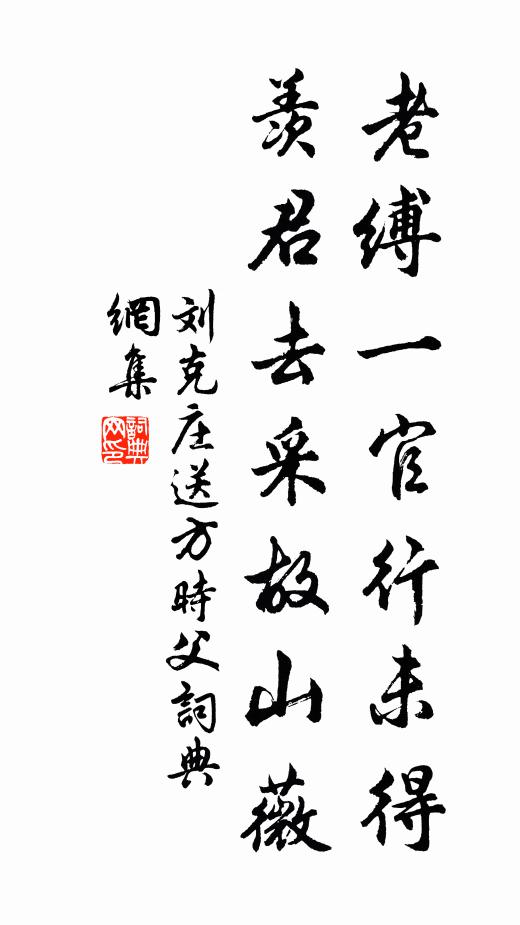 老缚一官行未得
羡君去采故山薇
刘克庄送方時父詞典
網集
詞典
网印